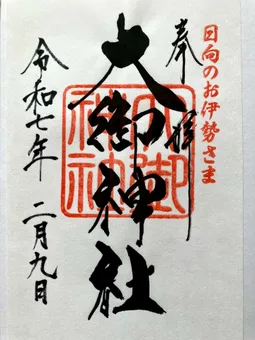 日向のお伊勢さま
奉拝
大御神社
令和七年 二月九日
大御神社